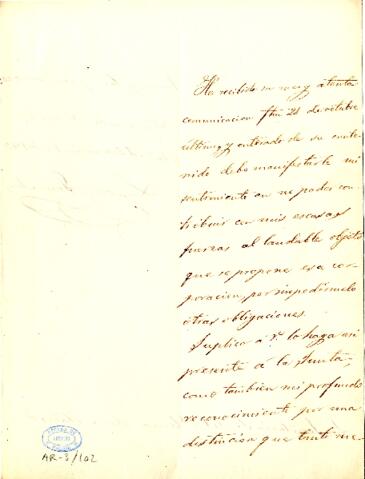 He recibido su muy atenta
comunicacion fha 21 de octubre
ultimo, y enterado de su conte-
nido debo manifestarle mi
sentimiento en no poder con-
tribuir con mis escasas
fuerzas al laudable objeto
que se propone esa cor-
poracion, por impedirmelo
otras obligaciones.
Suplico á V. lo haga asi
presente á la Junta,
como tambien mi profundo
reconocimiento por una
distincion que tanto me
AR-3/102